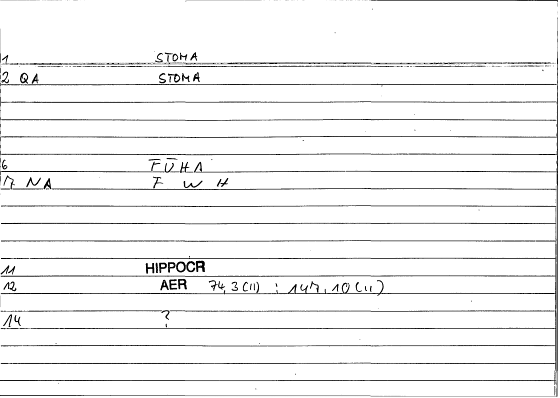 1 STOMA
2 QA STOMA
6 FŪHA
7 NA F W H
11 HIPPOCR
12 AER 74,3(II) : 147,10(II)
14 ?